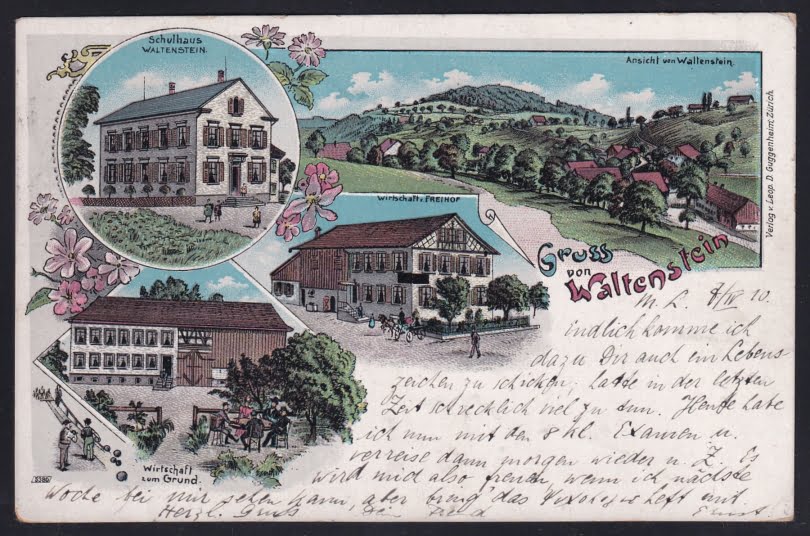 Schulhaus
WALTENSTEIN.
Ansicht von Waltenstein.
Verlag v. Leop. D. Guggenheim, Zürich.
Wirtschaft z. FREIHOF
Gruss
von
Waltenstein
M. L. 8/IV 10.
Endlich komme ich
dazu Dir auch ein Lebens
zeichen zu schicken, hatte in der letzten
Zeit schrecklich viel zu tun. Heute habe
ich nun mit den 8 Kl. Examen u.
verreise dann morgen wieder n. Z. Es
wird mich also freuen, wenn ich nächste
Woche bei mir sehen kann, aber bring das heft mit
Herzl. Gruss Dein Freund Ernst.
Wirtschaft
zum Grund.